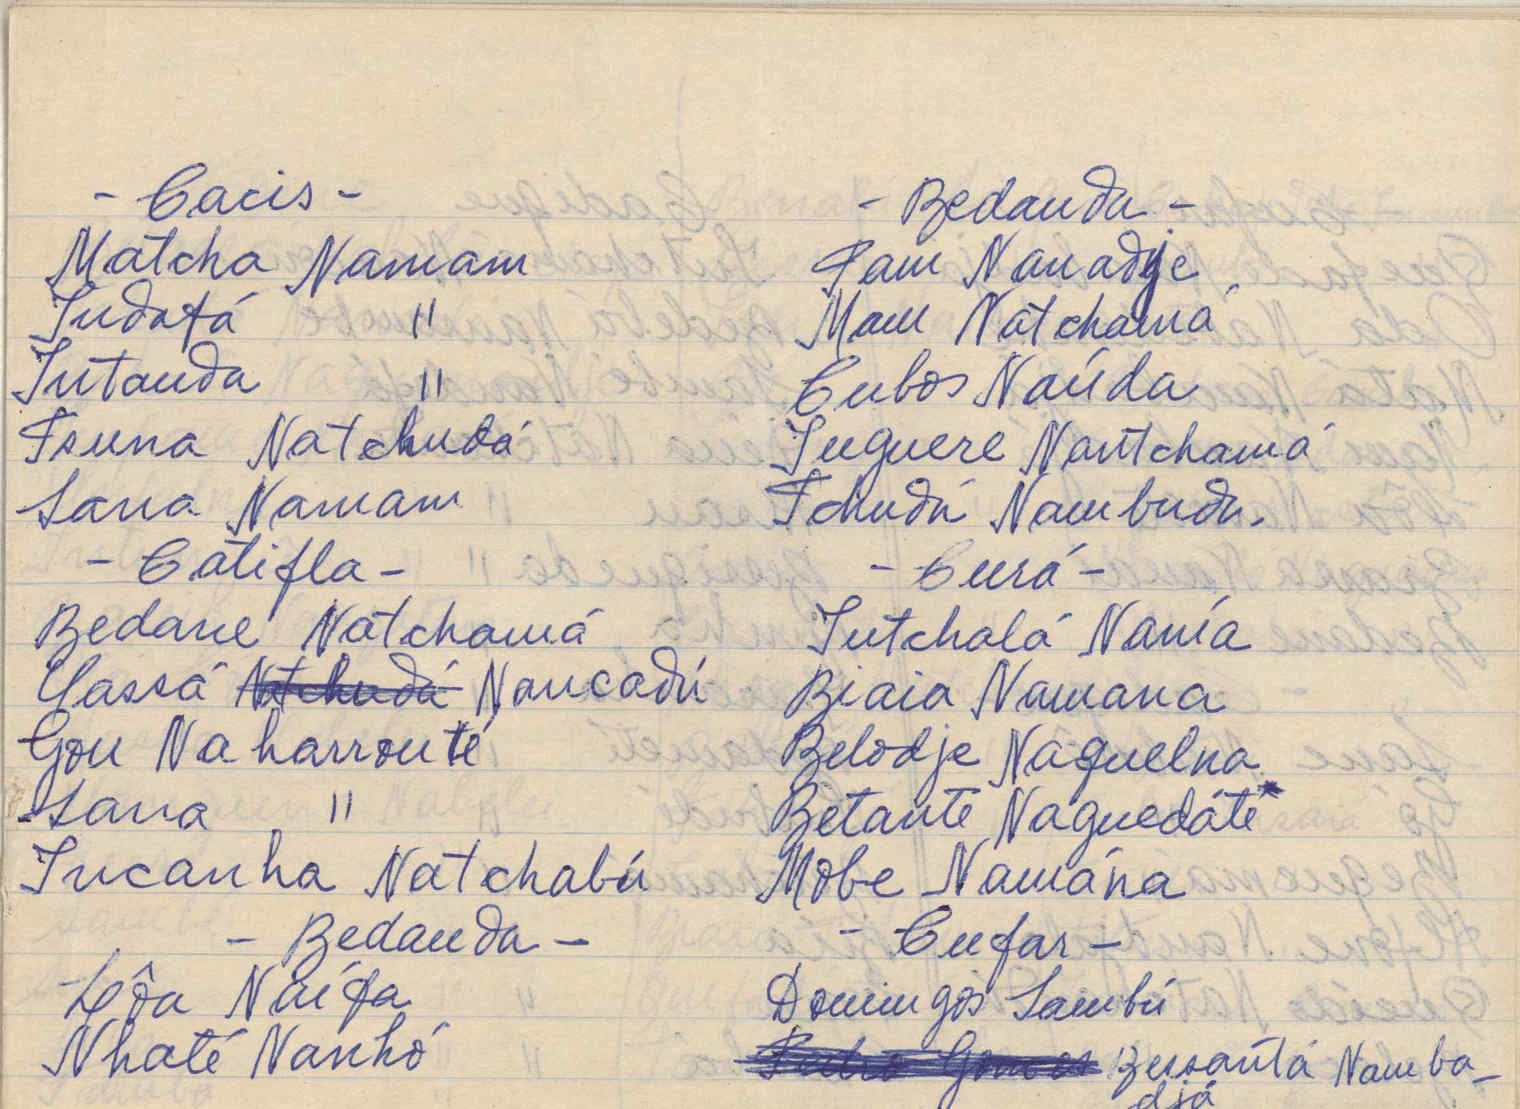 - Cacis -
Matcha Namam
Indafá "
Intanda "
Tsuna Natchudá
Sana Namam
- Catifla -
Bedane Natchamá
Yassá Natchudá Nancadú
Gou Naharronté
Sana "
Incanha Natchabú
- Bedanda -
Lôa Naífa
Nhaté Nanhó
- Bedanda -
Pam Nanadje
Mam Natchamá
Cubos Naúda
Inguere Nantchamá
Tchudú Nambudu.
- Curá -
Intchalá Nanía
Biaia Namana
Belodje Naquelna
Betante Naguedáté
Mobe Namána
- Cufar -
Domingos Sambú
Pedro Gomes Bussantá Namba-
djá